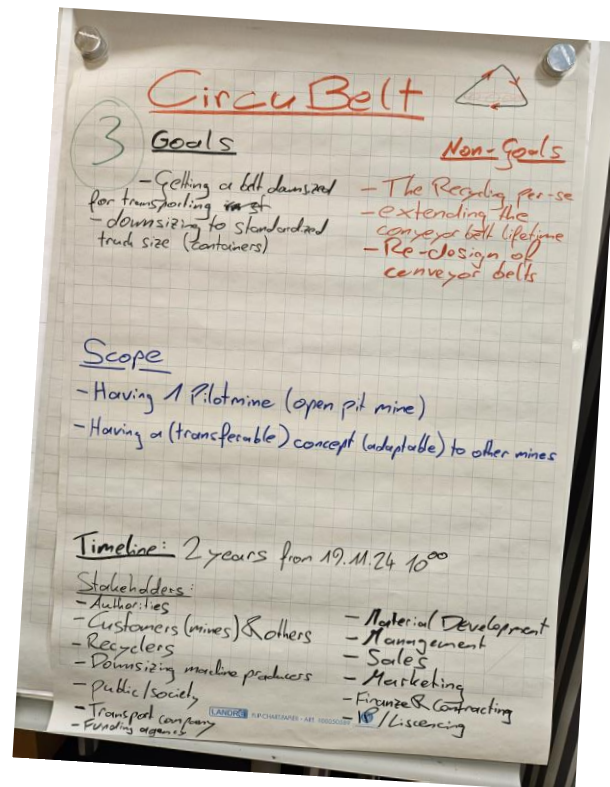 CircuBelt
3
Goals
- Getting a belt downsized
for transporting
- downsizing to standardized
truck size (containers)
Non-Goals
- The Recycling per-se
- extending the
conveyor belt lifetime
- Re-design of
conveyor belts
Scope
- Having 1 Pilotmine (open pit mine)
- Having a (transferable) concept (adaptable) to other mines
Timeline: 2 years from 19.11.24 10⁰⁰
Stakeholders:
- Authorities
- Customers (mines) & others
- Recyclers
- Downsizing machine producers
- public/society
- Transport company
- Funding agency
- Material Development
- Management
- Sales
- Marketing
- Finanze & Contracting
- IP/Liscencing
LANDRÉ FLIPCHARTPAPIER - ART.